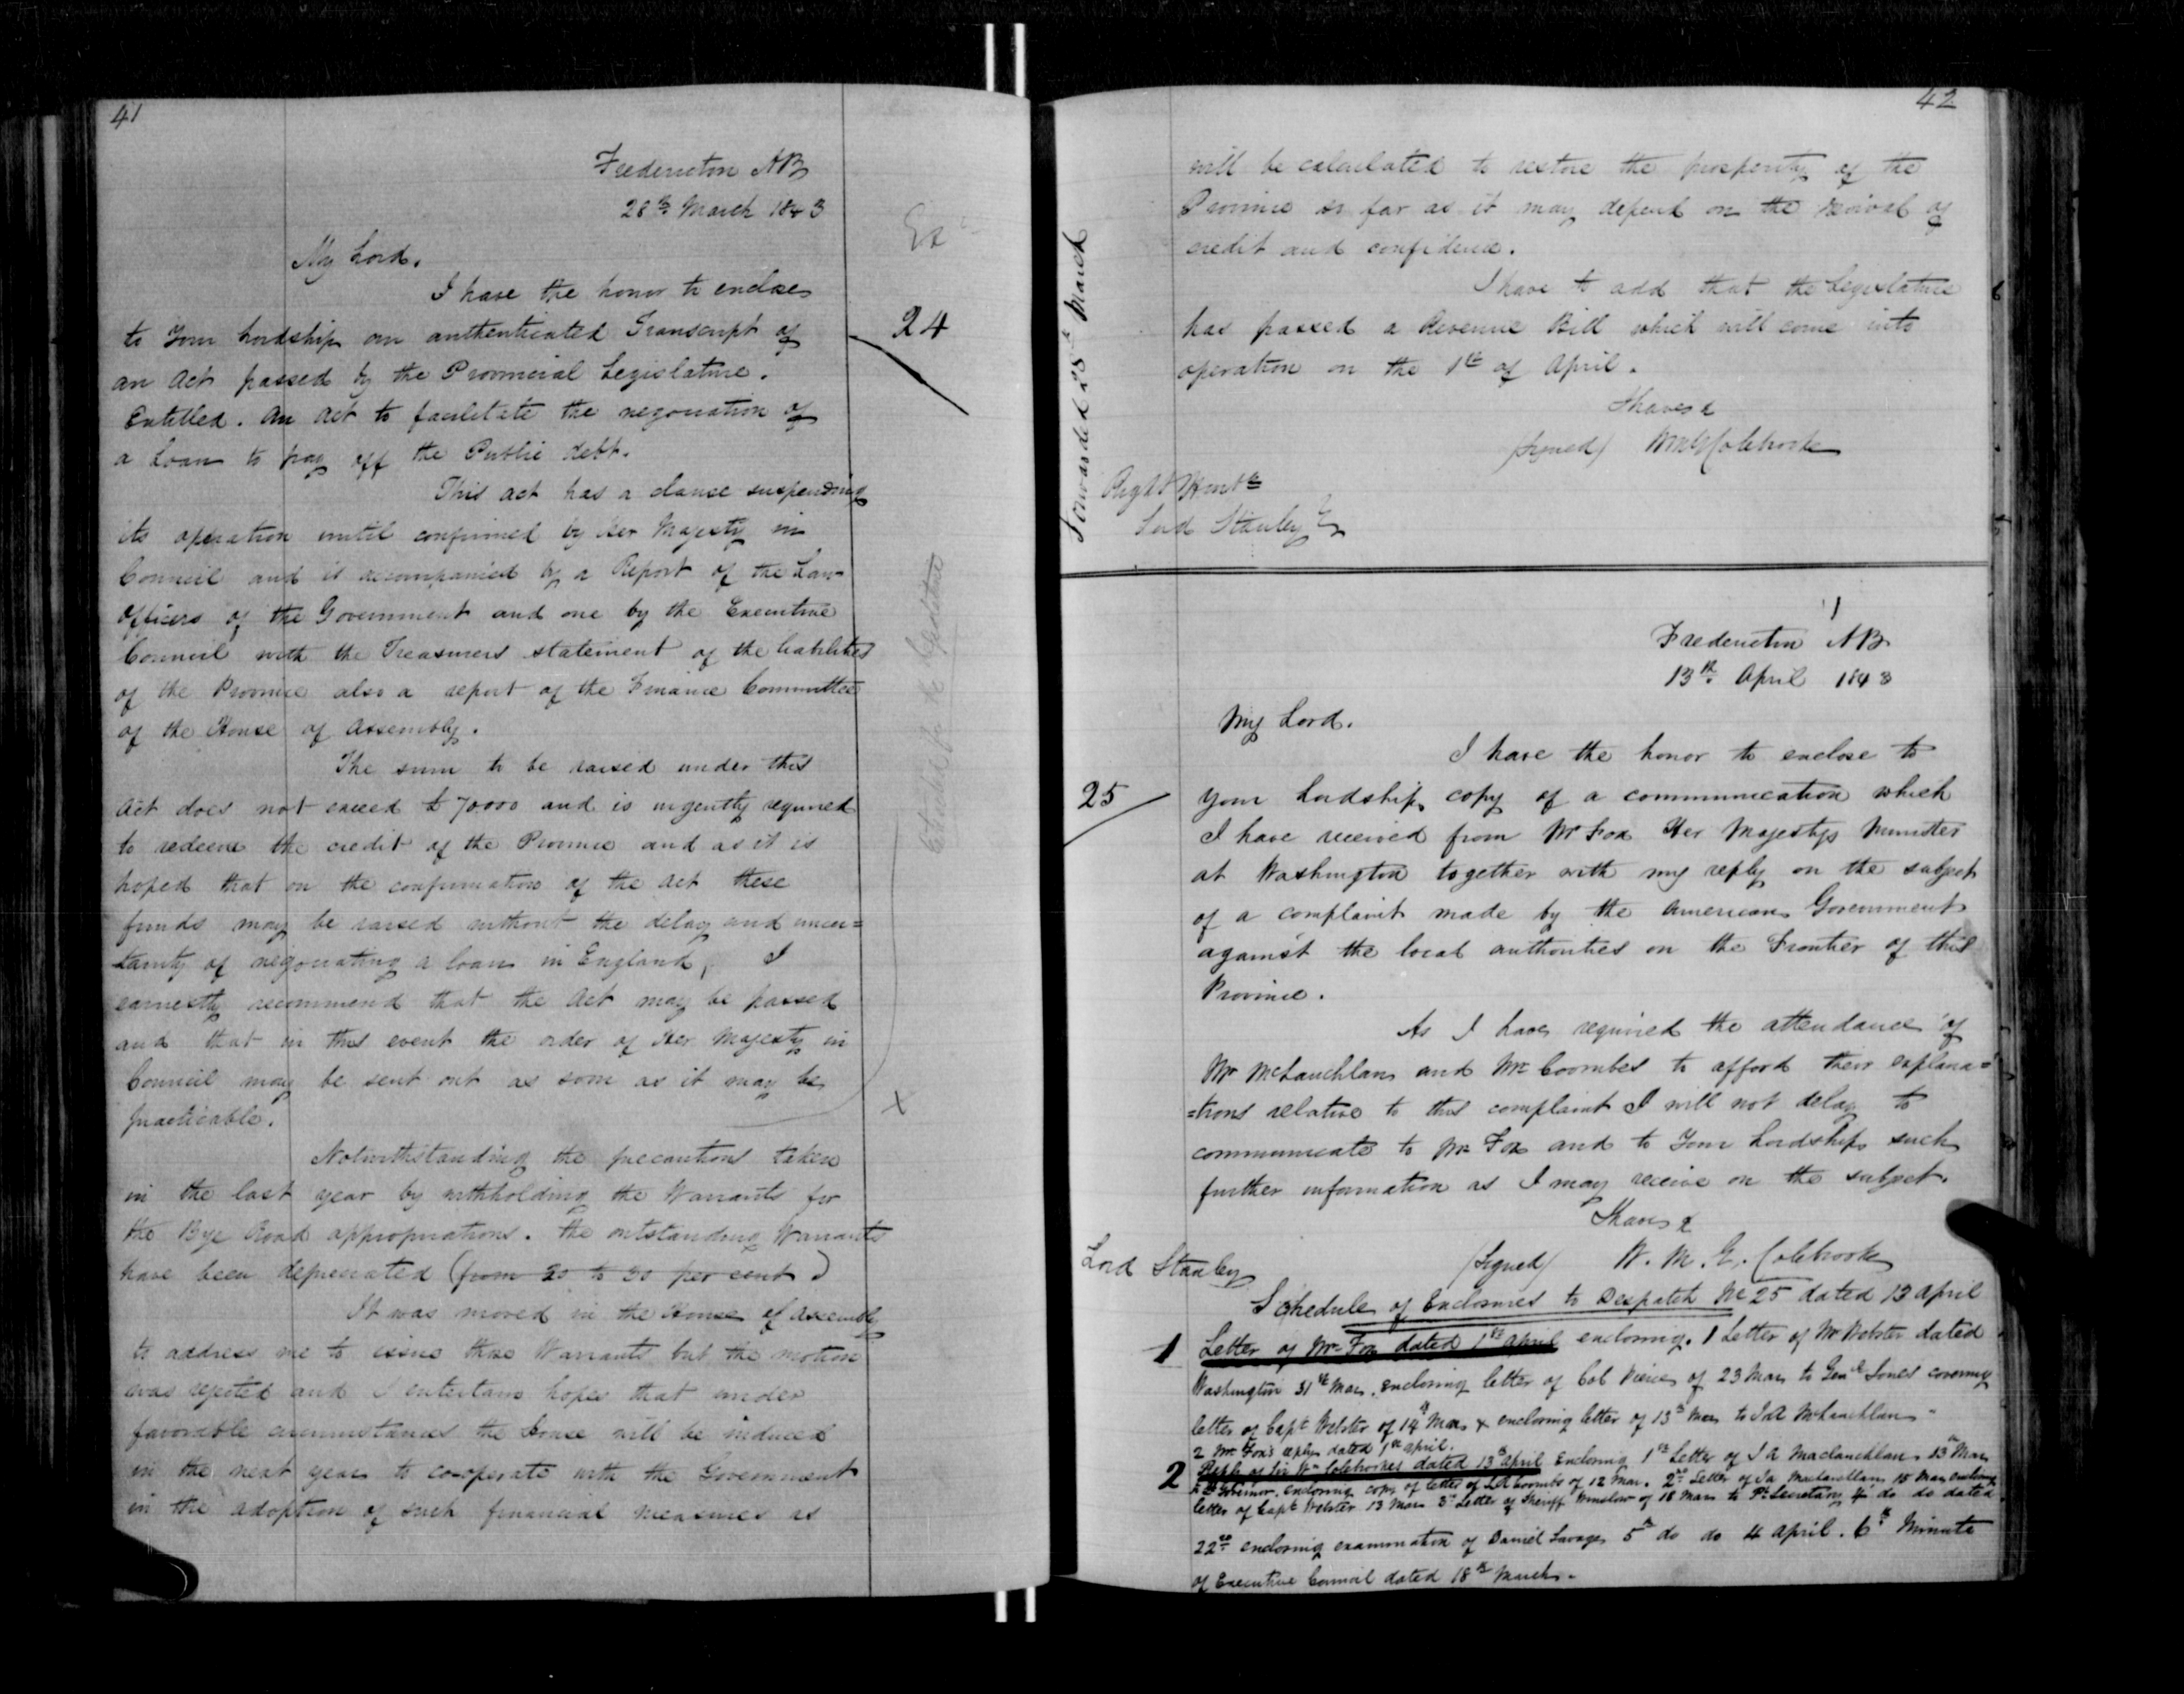 41
Fredericton NB
28th March 1843
My Lord.
I have the honor to enclose
24
to Your Lordship an authenticated Transcript of
an Act passed by the Provincial Legislature.
Entitled. An Act to facilitate the negociation of
a Loan to pay off the Public debt.
This act has a clause suspending
its operation until confirmed by Her Majesty in
Council and is accompanied by a Report of the Law
Officers of the Government and one by the Executive
Council with the Treasurers statement of the liabilities
of the Province also a report of the Finance Committee
of the House of Assembly.
The sum to be raised under this
Act does not exceed £70000 and is urgently required
to redeem the credit of the Province and as it is
hoped that on the confirmation of the Act these
funds may be raised without the delay and uncer=
tainty of negociating a loan in England, I
earnestly recommend that the Act may be passed
and that in this event the order of Her Majesty in
Council may be sent out as soon as it may be
practicable.
X
Notwithstanding the precautions taken
in the last year by withholding the Warrants for
the Bye Road appropriations. the outstanding Warrants
have been depreciated (from 20 to 30 per cent)
It was moved in the House of Assembly
to address me to issue these Warrants but the motion
was rejected and I entertain hopes that under
favorable circumstances the House will be induced
in the next year to co-operate with the Government
in the adoption of such financial measures as
42
will be calculated to restore the prosperity of the
Province so far as it may depend on the revival of
credit and confidence.
I have to add that the Legislature
has passed a Revenue Bill which will come into
operation on the 1st of April.
I have &
(Signed) WMG Colebrooke
Right Honble
Lord Stanley
Forwarded 28th March
Fredericton NB
13th April 1843
My Lord.
I have the honor to enclose to
25
Your Lordship copy of a communication which
I have received from Mr Fox Her Majestys Minister
at Washington together with my reply on the subject
of a complaint made by the American Government
against the local authorities on the Frontier of this
Province.
As I have required the attendance of
Mr McLauchlan and Mr Coombes to afford their explana=
=tions relative to this complaint I will not delay to
communicate to Mr Fox and to Your Lordship such
further information as I may receive on the subject.
I have &
(Signed) W. M. G. Colebrooke
Lord Stanley
Schedule of Enclosures to Despatch No 25 dated 13 April
1 Letter of Mr Fox dated 1st April enclosing. 1 Letter of Mr Webster dated
Washington 31st Mar. enclosing letter of Col Pierce of 23 Mar to Genl Jones covering
letter of Capt Webster of 14th Mar & enclosing letter of 13th Mar to J A McLauchlan
2 Mr Fox's reply dated 1st April.
2 Reply of Sir Wm Colebrookes dated 13th April Enclosing 1st Letter of J A Maclauchlan 13th Mar
to Lt Governor. enclosing copy of letter of L R Coombs of 12 Mar. 2nd Letter of Ja Maclauchlan 15 Mar enclosing
letter of Capt Webster 13 Mar 3d Letter of Sheriff Winslow of 18 Mar to Pl Secretary 4 do do dated
22nd enclosing examination of Daniel Savage 5th do do 4 April. 6th Minute
of Executive Council dated 18th March.